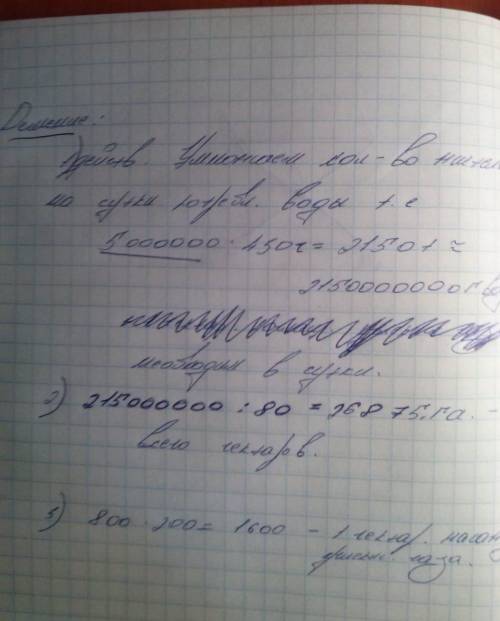 Решение:
1) действ. Умножаем кол-во
на сутки потребл. воды т. е
5 000000 · 430г = 2150 т
2150000000г
необходим в сутки.
2) 215000000 : 80 = 26875 га. -
всего гектаров.
3) 800 · 200 = 1600 - 1 гектар.